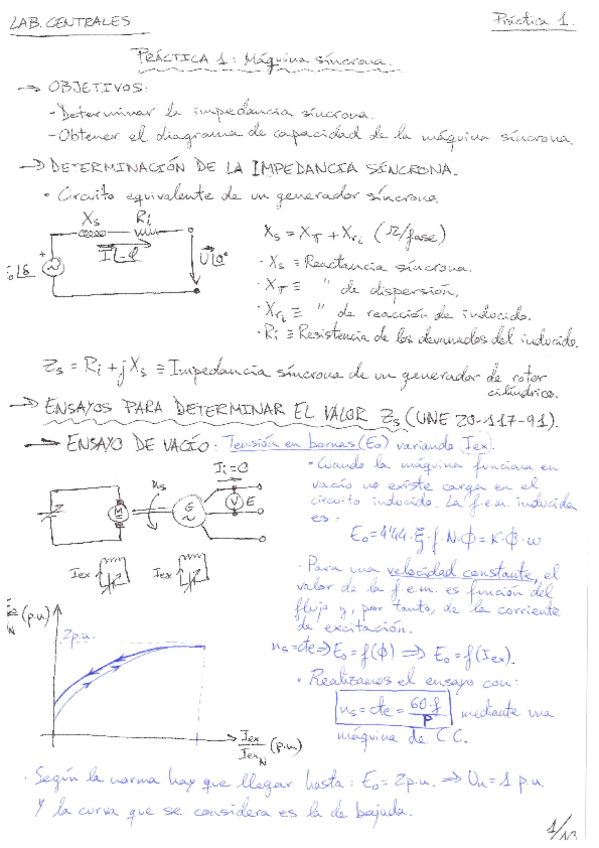 LAB. CENTRALES
Práctica 1.
PRÁCTICA 1: Máquina síncrona.
→ OBJETIVOS:
- Determinar la impedancia síncrona.
- Obtener el diagrama de capacidad de la máquina síncrona.
→ DETERMINACIÓN DE LA IMPEDANCIA SÍNCRONA.
• Circuito equivalente de un generador síncrono.
Xs Ri
I∟-φ
U∟0°
+
Xs = Xσ + Xri (Ω/fase)
· Xs ≡ Reactancia síncrona.
· Xσ ≡ " de dispersión.
· Xri ≡ " de reacción de inducido.
· Ri ≡ Resistencia de los devanados del inducido.
Zs = Ri + jXs ≡ Impedancia síncrona de un generador de rotor
cilíndrico.
→ ENSAYOS PARA DETERMINAR EL VALOR Zs (UNE 20-117-91).
→ ENSAYO DE VACÍO: Tensión en bornas (Eo) variando Iex.
ns
Ii=0
M
G
V E
Iex
Iex
• Cuando la máquina funciona en
vacío no existe carga en el
circuito inducido. La f.e.m. inducida
es:
Eo = 4'44·ξ·f·N·Φ = K·Φ·ω
· Para una velocidad constante, el
valor de la f.e.m. es función del
flujo y, por tanto, de la corriente
de excitación.
ns=cte ⇒ Eo = f(Φ) ⇒ Eo = f(Iex).
• Realizamos el ensayo con:
ns = cte = 60·f/P mediante una
máquina de C.C.
(p.u.)
2p.u.
Iex/IexN (p.u.)
· Según la norma hay que llegar hasta: Eo = 2p.u. ⇒ Un = 1 p.u.
Y la curva que se considera es la de bajada.
1/13